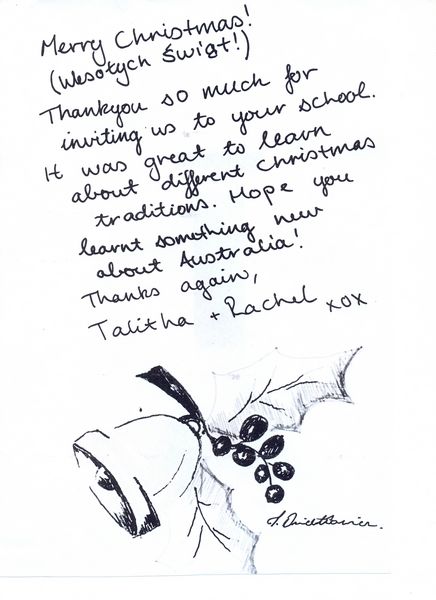 Merry Christmas!
(Wesołych Świąt!)
Thankyou so much for
inviting us to your school.
It was great to learn
about different Christmas
traditions. Hope you
learnt something new
about Australia!
Thanks again,
Talitha + Rachel xox